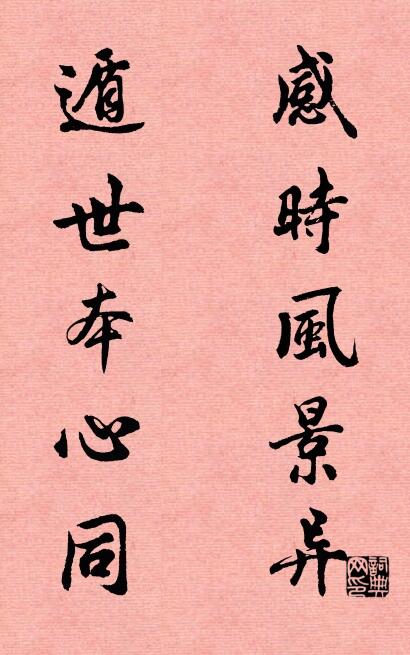 感時風景异
遁世本心同
詞典网印